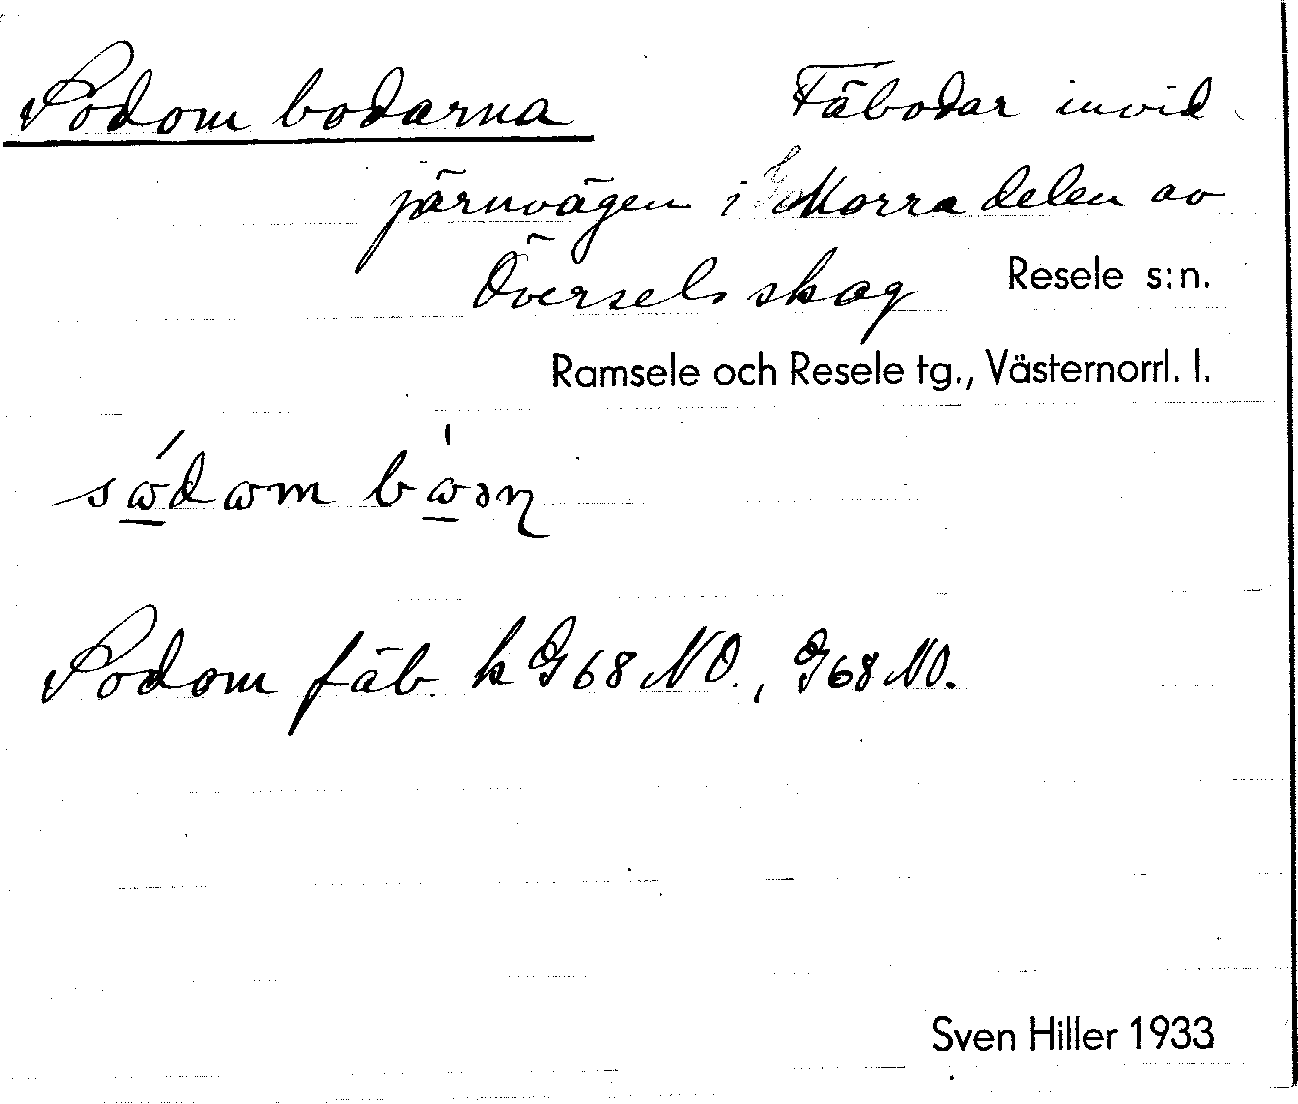 Sodom bodarna Fäbodar invid
järnvägen i Norra delen av
Översels skog Resele s:n.
Ramsele och Resele tg., Västernorrl. l.
Sodom fäb. k G68 NO., G68 NO.
Sven Hiller 1933